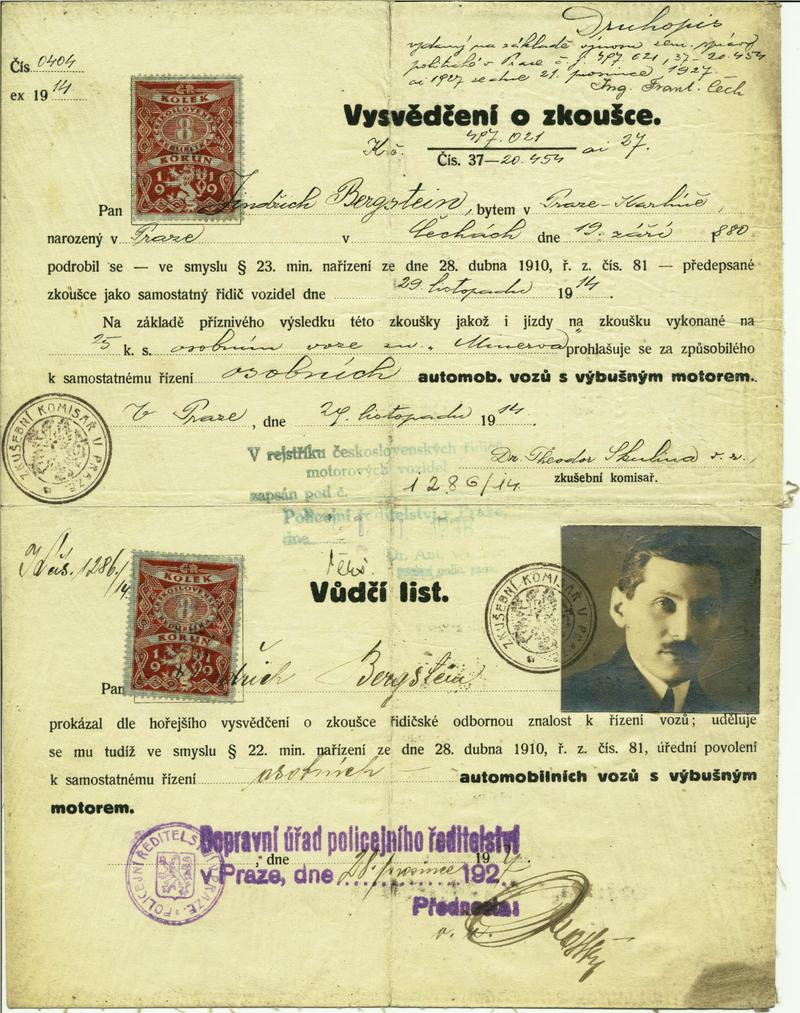 Čís 0404
ex 1914
Druhopis
vydaný na základě výnosu zem. správy
politické v Praze č. j. 497.021, 37–20.454
ai 1927 ze dne 21. prosince 1927
Ing. Frant. Čech
KOLEK
8
KORUN
1919
Vysvědčení o zkoušce.
Kč. 497.021 ai 27.
Čís. 37—20.454
Pan Jindřich Bergstein, bytem v Praze-Karlíně,
narozený v Praze v Čechách dne 19. září 1880
podrobil se — ve smyslu § 23. min. nařízení ze dne 28. dubna 1910, ř. z. čís. 81 — předepsané
zkoušce jako samostatný řidič vozidel dne 29. listopadu 1914.
Na základě příznivého výsledku této zkoušky jakož i jízdy na zkoušku vykonané na
25 k. s. osobním voze zn. „Minerva" prohlašuje se za způsobilého
k samostatnému řízení osobních automob. vozů s výbušným motorem.
V Praze, dne 29. listopadu 1914.
ZKUŠEBNÍ KOMISAŘ V PRAZE
V rejstříku československých řidičů
motorových vozidel
zapsán pod č.
Policejní ředitelství v Praze,
dne
Dr. Ant.
Dr. Theodor Skulina v. r.,
1286/14. zkušební komisař.
1286/14.
KOLEK
8
KORUN
1919
Vůdčí list.
ZKUŠEBNÍ KOMISAŘ V PRAZE
Pan Jindřich Bergstein
prokázal dle hořejšího vysvědčení o zkoušce řidičské odbornou znalost k řízení vozů; uděluje
se mu tudíž ve smyslu § 22. min. nařízení ze dne 28. dubna 1910, ř. z. čís. 81, úřední povolení
k samostatnému řízení osobních automobilních vozů s výbušným
motorem.
POLICEJNÍ ŘEDITELSTVÍ V PRAZE
Dopravní úřad policejního ředitelství
, dne 28. prosince 19
v Praze, dne 192
Přednosta: